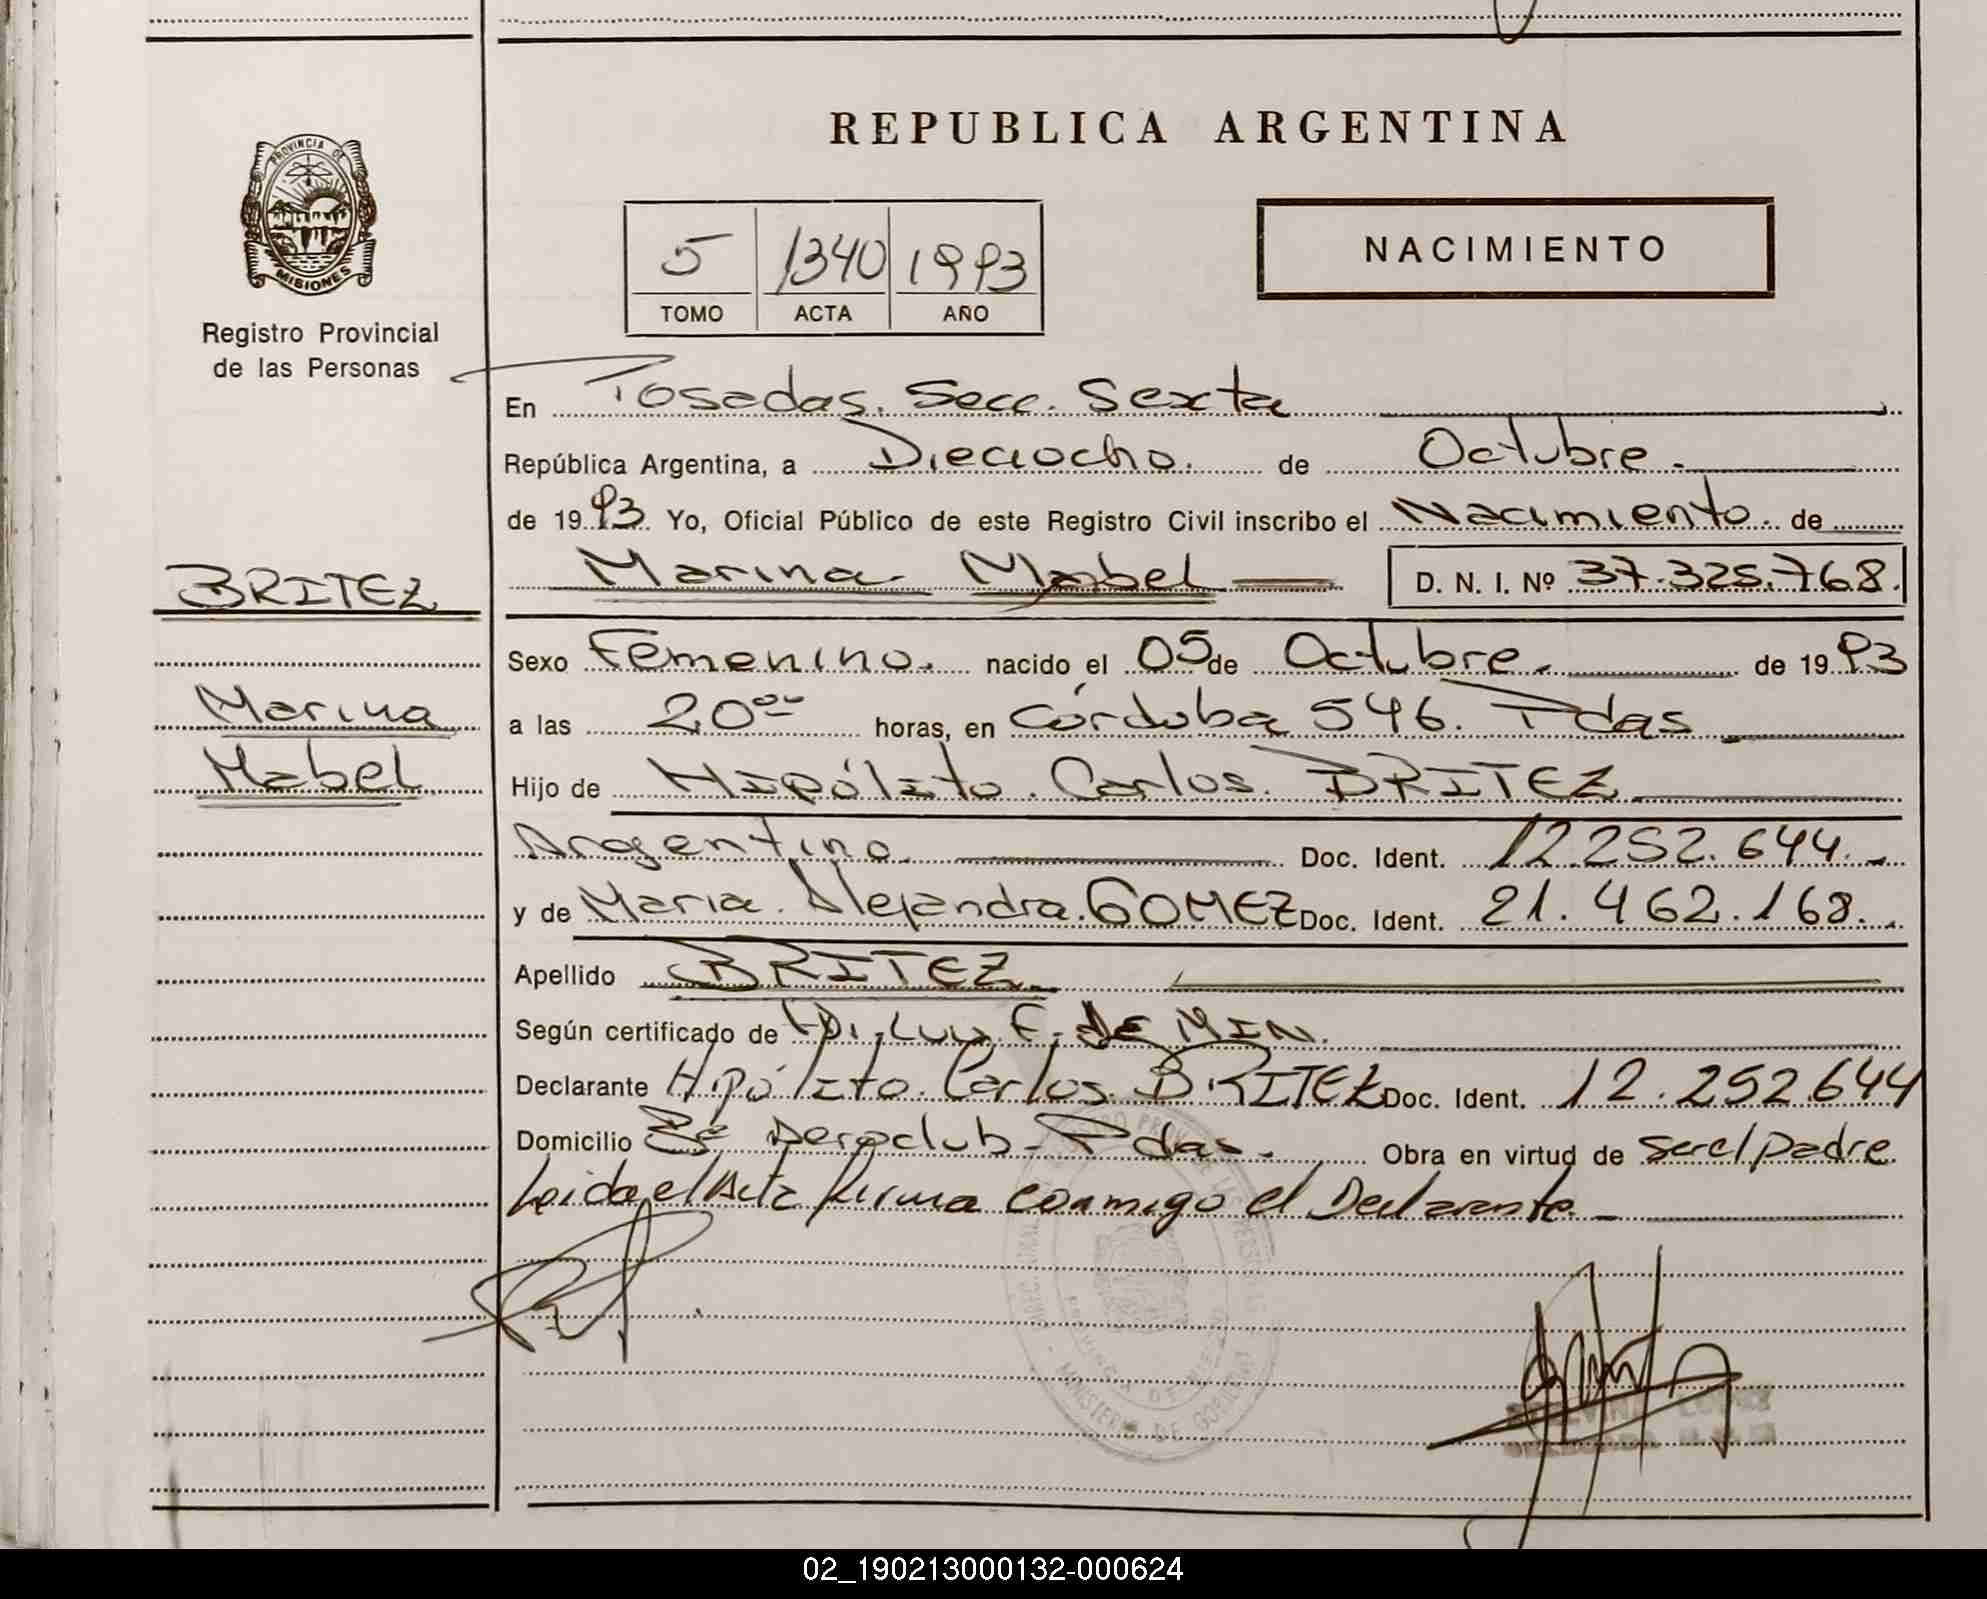 REPUBLICA ARGENTINA
PROVINCIA DE
MISIONES
Registro Provincial
de las Personas
5 1340 1993
TOMO ACTA AÑO
NACIMIENTO
En Posadas. Secc. Sexta
República Argentina, a Dieciocho. de Octubre.
de 1993 Yo, Oficial Público de este Registro Civil inscribo el Nacimiento. de
Marina Mabel D. N. I. Nº 37.325.768.
BRITEZ
Marina
Mabel
Sexo Femenino. nacido el 05 de Octubre. de 1993
a las 20 horas, en Córdoba 546. Pdas
Hijo de Hipólito. Carlos. BRITEZ
Argentino. Doc. Ident. 12.252.644.-
y de Maria. Alejandra. GOMEZ Doc. Ident. 21.462.168.
Apellido BRITEZ.
Según certificado de F. De MIN.
Declarante Hipólito. Carlos. BRITEZ Doc. Ident. 12.252.644
Domicilio Bº Aeroclub-Pdas. Obra en virtud de ser el padre
Leida el Acta firma conmigo el Declarante.-
MINISTERIO DE GOBIERNO
02_190213000132-000624